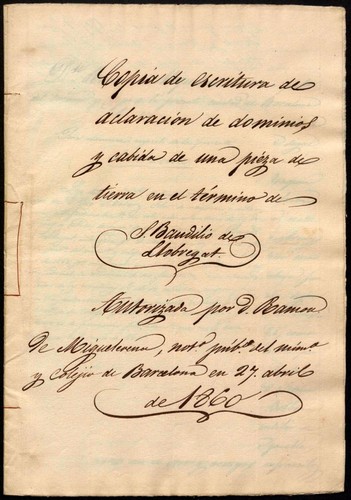 Copia de escritura de
aclaración de dominios
y cabida de una pieza de
tierra en el término de
S. Baudilio de
Llobregat.
Autorizada por D. Ramon
de Miquelerena, not.º púb.º del núm.º
y colegio de Barcelona en 27. abril
de 1860